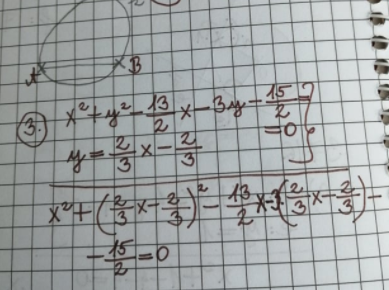 A B
3. x² + y² - 13/2 x - 3y - 15/2 =
= 0
y = 2/3 x - 2/3
x² + (2/3 x - 2/3)² - 13/2 x - 3(2/3 x - 2/3) -
- 15/2 = 0